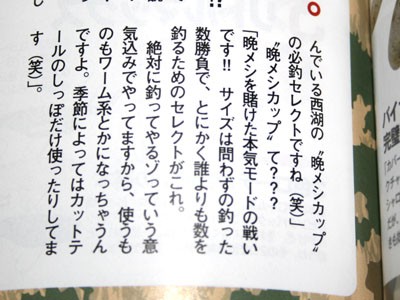 んでいる西湖の〝晩メシカップ〟
の必釣セレクトですね（笑）」
〝晩メシカップ〟て？？？
「晩メシを賭けた本気モードの戦い
です!! サイズは問わずの釣った
数勝負で、とにかく誰よりも数を
釣るためのセレクトがこれ。
絶対に釣ってやるゾっていう意
気込みでやってますから、使うも
のもワーム系とかになっちゃうん
ですよ。季節によってはカットテ
ールのしっぽだけ使ったりしてま
す（笑）」。